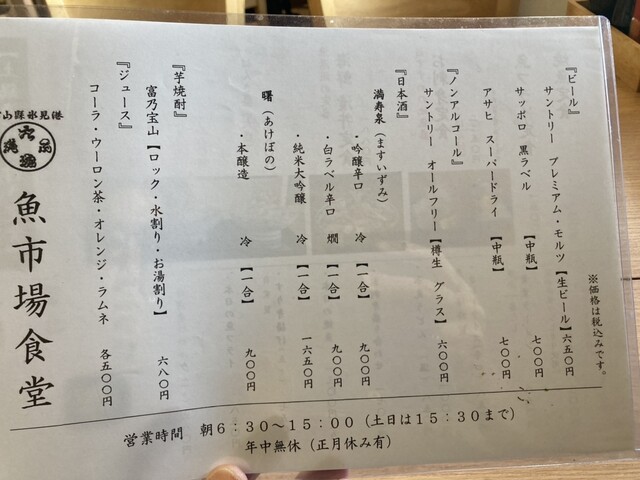 ※価格は税込みです。
『ビール』
サントリー プレミアム・モルツ【生ビール】六五〇円
サッポロ 黒ラベル 【中瓶】 七〇〇円
アサヒ スーパードライ 【中瓶】 七〇〇円
『ノンアルコール』
サントリー オールフリー【樽生 グラス】 六〇〇円
『日本酒』
満寿泉（ますいずみ）
・吟醸辛口 冷 【一合】 九〇〇円
・白ラベル辛口 燗 【一合】 九〇〇円
・純米大吟醸 冷 【一合】 一六五〇円
曙（あけぼの）
・本醸造 冷 【一合】 九〇〇円
『芋焼酎』
富乃宝山【ロック・水割り・お湯割り】 六八〇円
『ジュース』
コーラ・ウーロン茶・オレンジ・ラムネ 各五〇〇円
山縣氷見港
魚市場食堂
営業時間 朝６：３０～１５：００（土日は１５：３０まで）
年中無休（正月休み有）